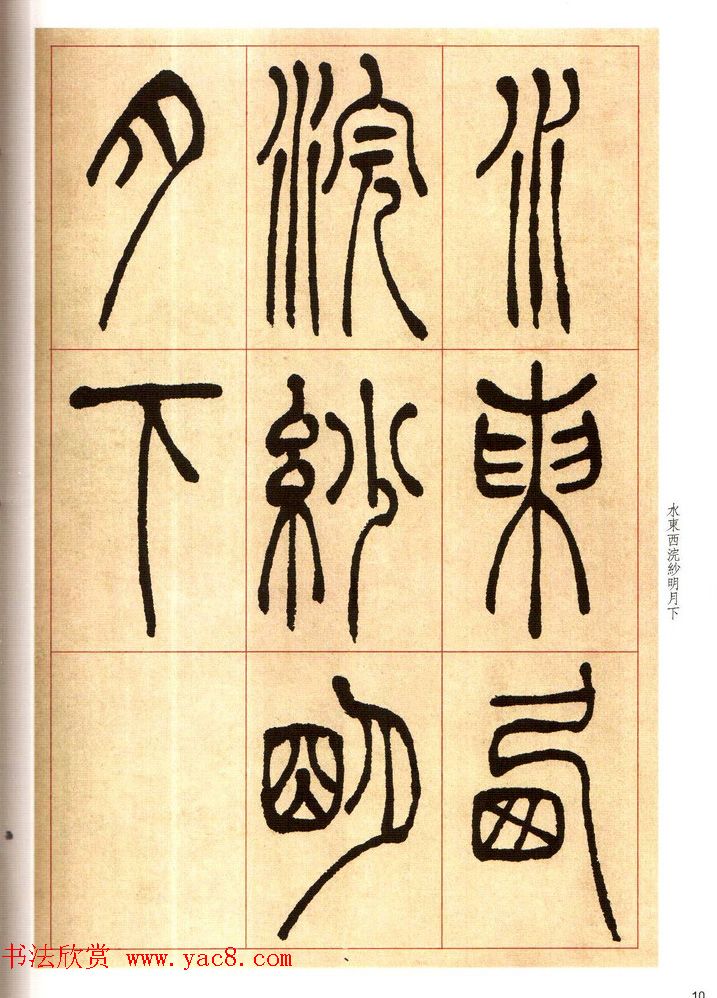 水東西
浣紗明
月下
水東西浣紗明月下
书法欣赏 www.yac8.com
10